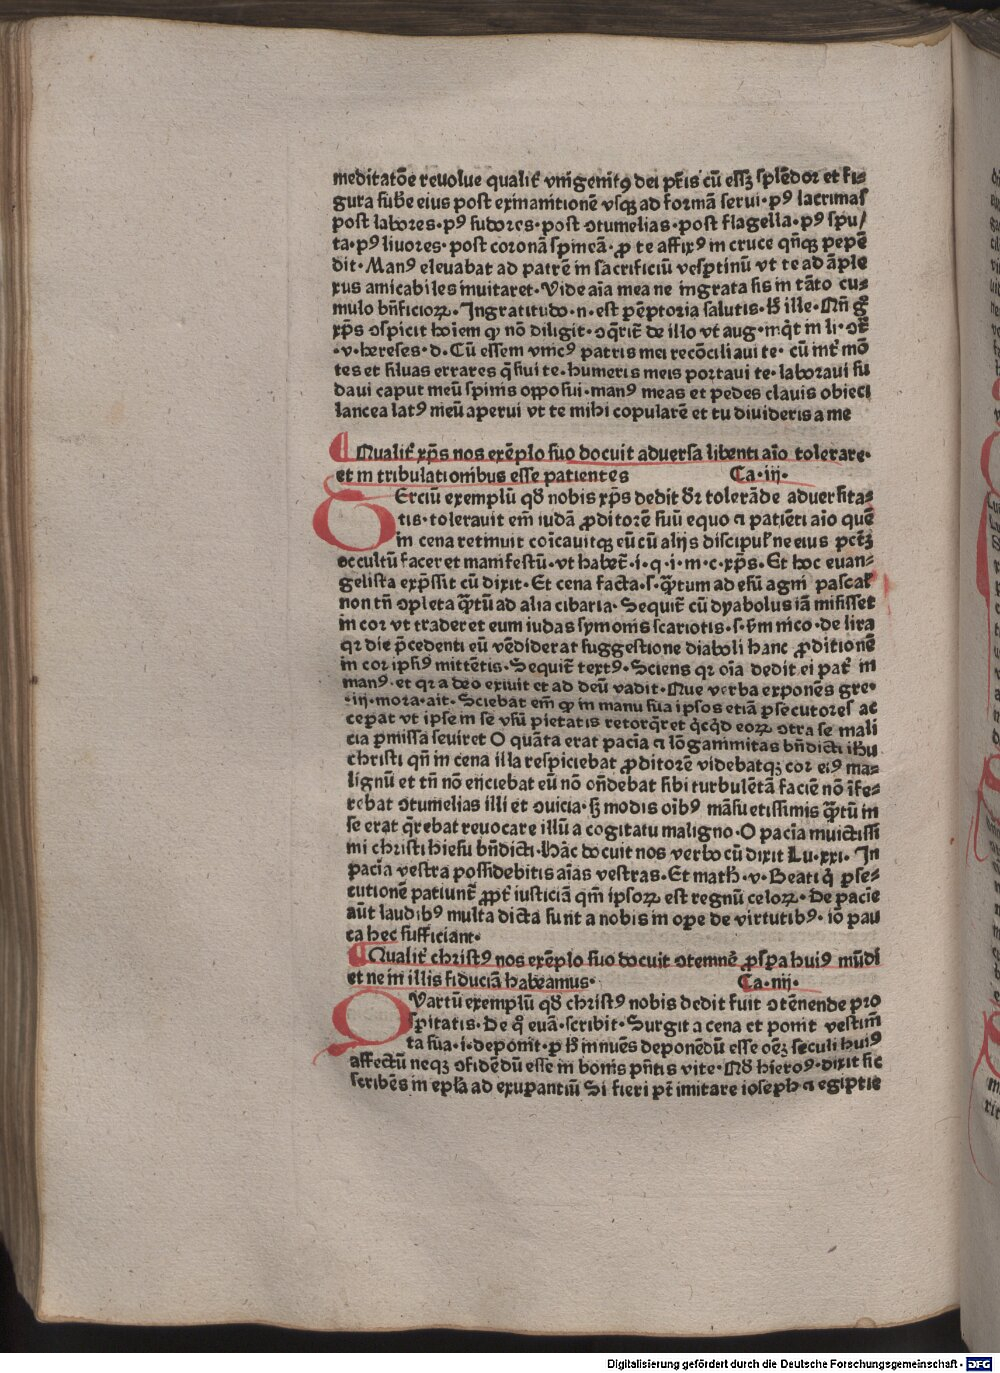 meditatōe reuolue qualit᷑ vnigenitꝰ dei pr̄is cū essꝫ splēdor et fi-
gura sub̄e eius post exinanitionē vsqꝫ ad formā serui· pꝰ lacrimas
post labores· pꝰ sudores· post ↄtumelias· post flagella· pꝰ spu/
ta· pꝰ liuores· post coronā spineā· ꝓ te affixꝰ in cruce qn̄qꝫ pepē
dit· Manꝰ eleuabat ad patrē in sacrificiū vesꝑtinū vt te ad āple
xus amicabiles inuitaret· Vide aīa mea ne ingrata sis in tāto cu-
mulo bn̄ficioꝝ· Ingratitudo· n· est perēptoria salutis· H̄ ille· Nn̄ gͦ
xp̄s ↄspicit hoīem qͥ nō diligit· ↄq̄rit᷑ de illo vt aug· inq̇t in li· ↄt᷑
·v· hereses· d· Cū essem vnicꝰ patris mei recōciliaui te· cū int᷑ mō
tes et siluas errares q̄siui te· humeris meis portaui te· laboraui su
daui caput meū spinis opposui· manꝰ meas et pedes clauis obieci
lancea latꝰ meū aperui vt te mihi copularē et tu diuideris a me
¶ Qualit᷑ xp̄s nos exēplo suo docuit aduersa libenti aīo tolerare·
et in tribulationibus esse patientes Ca· iij·
TErciū exemplū qd̄ nobis xp̄s dedit d̄r tolerāde aduersita-
tis· tolerauit em̄ iudā ꝓditorē suū equo ⁊ patiēti aīo quē
in cena retinuit coīcauitqꝫ eū cū alijs discipul᷑ ne eius pct̄ꝫ
occultū faceret manifestū· vt habet᷑· i· q· i· m· c· xp̄s· Et hoc euan-
gelista exp̄ssit cū dixit· Et cena facta· s· qᷓtum ad esū agni pascal᷑
non tn̄ ↄpleta qᷓtū ad alia cibaria· Sequit᷑ cū dyabolus iā misisset
in cor vt traderet eum iudas symonis scariotis· s· ẜm nico· de lira
qꝛ die p̄cedenti eū vēdiderat suggestione diaboli hanc ꝓditionē
in cor ipsiꝰ mittētis· Sequit᷑ textꝰ· Sciens qꝛ oīa dedit ei pat᷑ in
manꝰ· et qꝛ a deo exiuit et ad deū vadit· Que verba exponēs gre·
·iij· mora· ait· Sciebat em̄ qͥ in manu sua ipsos etiā ꝑsecutores ac
ceperat vt ipse in se vsū pietatis retorq̄ret qͥcqͥd eoꝝ ↄtra se mali
cia ꝑmissa seuiret O quāta erat paciā ⁊ lōganimitas bn̄dicti ihu
christi qn̄ in cena illa respiciebat ꝓditorē videbatqꝫ cor eiꝰ ma-
lignū et tn̄ nō eijciebat eū nō on̄debat sibi turbulētā faciē nō īfe-
rebat ↄtumelias illi et ↄuicia· sꝫ modis oībꝰ māsuetissimis qᷓtū in
se erat q̄rebat reuocare illū a cogitatu maligno· O paciā inuictissi
mi christi hiesu bn̄dicti· Hāc docuit nos verbo cū dixit Lu· xxi· In
paciā vestra possidebitis aīas vestras· Et math̄· v· Beati qͥ ꝑse-
cutionē patiunt᷑ ꝓpt᷑ iusticiā qm̄ ipsoꝝ est regnū celoꝝ· De paciē
aūt laudibꝰ multa dicta sunt a nobis in oꝑe de virtutibꝰ· iō pau
ca hec sufficiant·
¶ Qualit᷑ christꝰ nos exēplo suo docuit ↄtemnē ꝓsꝑa huiꝰ mūdi
et ne in illis fiduciā habeamus· Ca· iiij·
QVartū exemplū qd̄ christꝰ nobis dedit fuit ↄtēnende pro
sꝑitatis· De qͦ euā· scribit· Surgit a cena et ponit vestim̄
ta sua· i· deponit· ꝑ h̄ innuēs deponēdū esse oēꝫ seculi huiꝰ
affectū neqꝫ ↄfidēdū esse in bonis pn̄tis vite· Nō hieroꝰ· dixit sic
scribēs in epl̄a ad exuperantiū Si fieri pt̄ imitare ioseph ⁊ egiptie
Digitalisierung gefördert durch die Deutsche Forschungsgemeinschaft - DFG